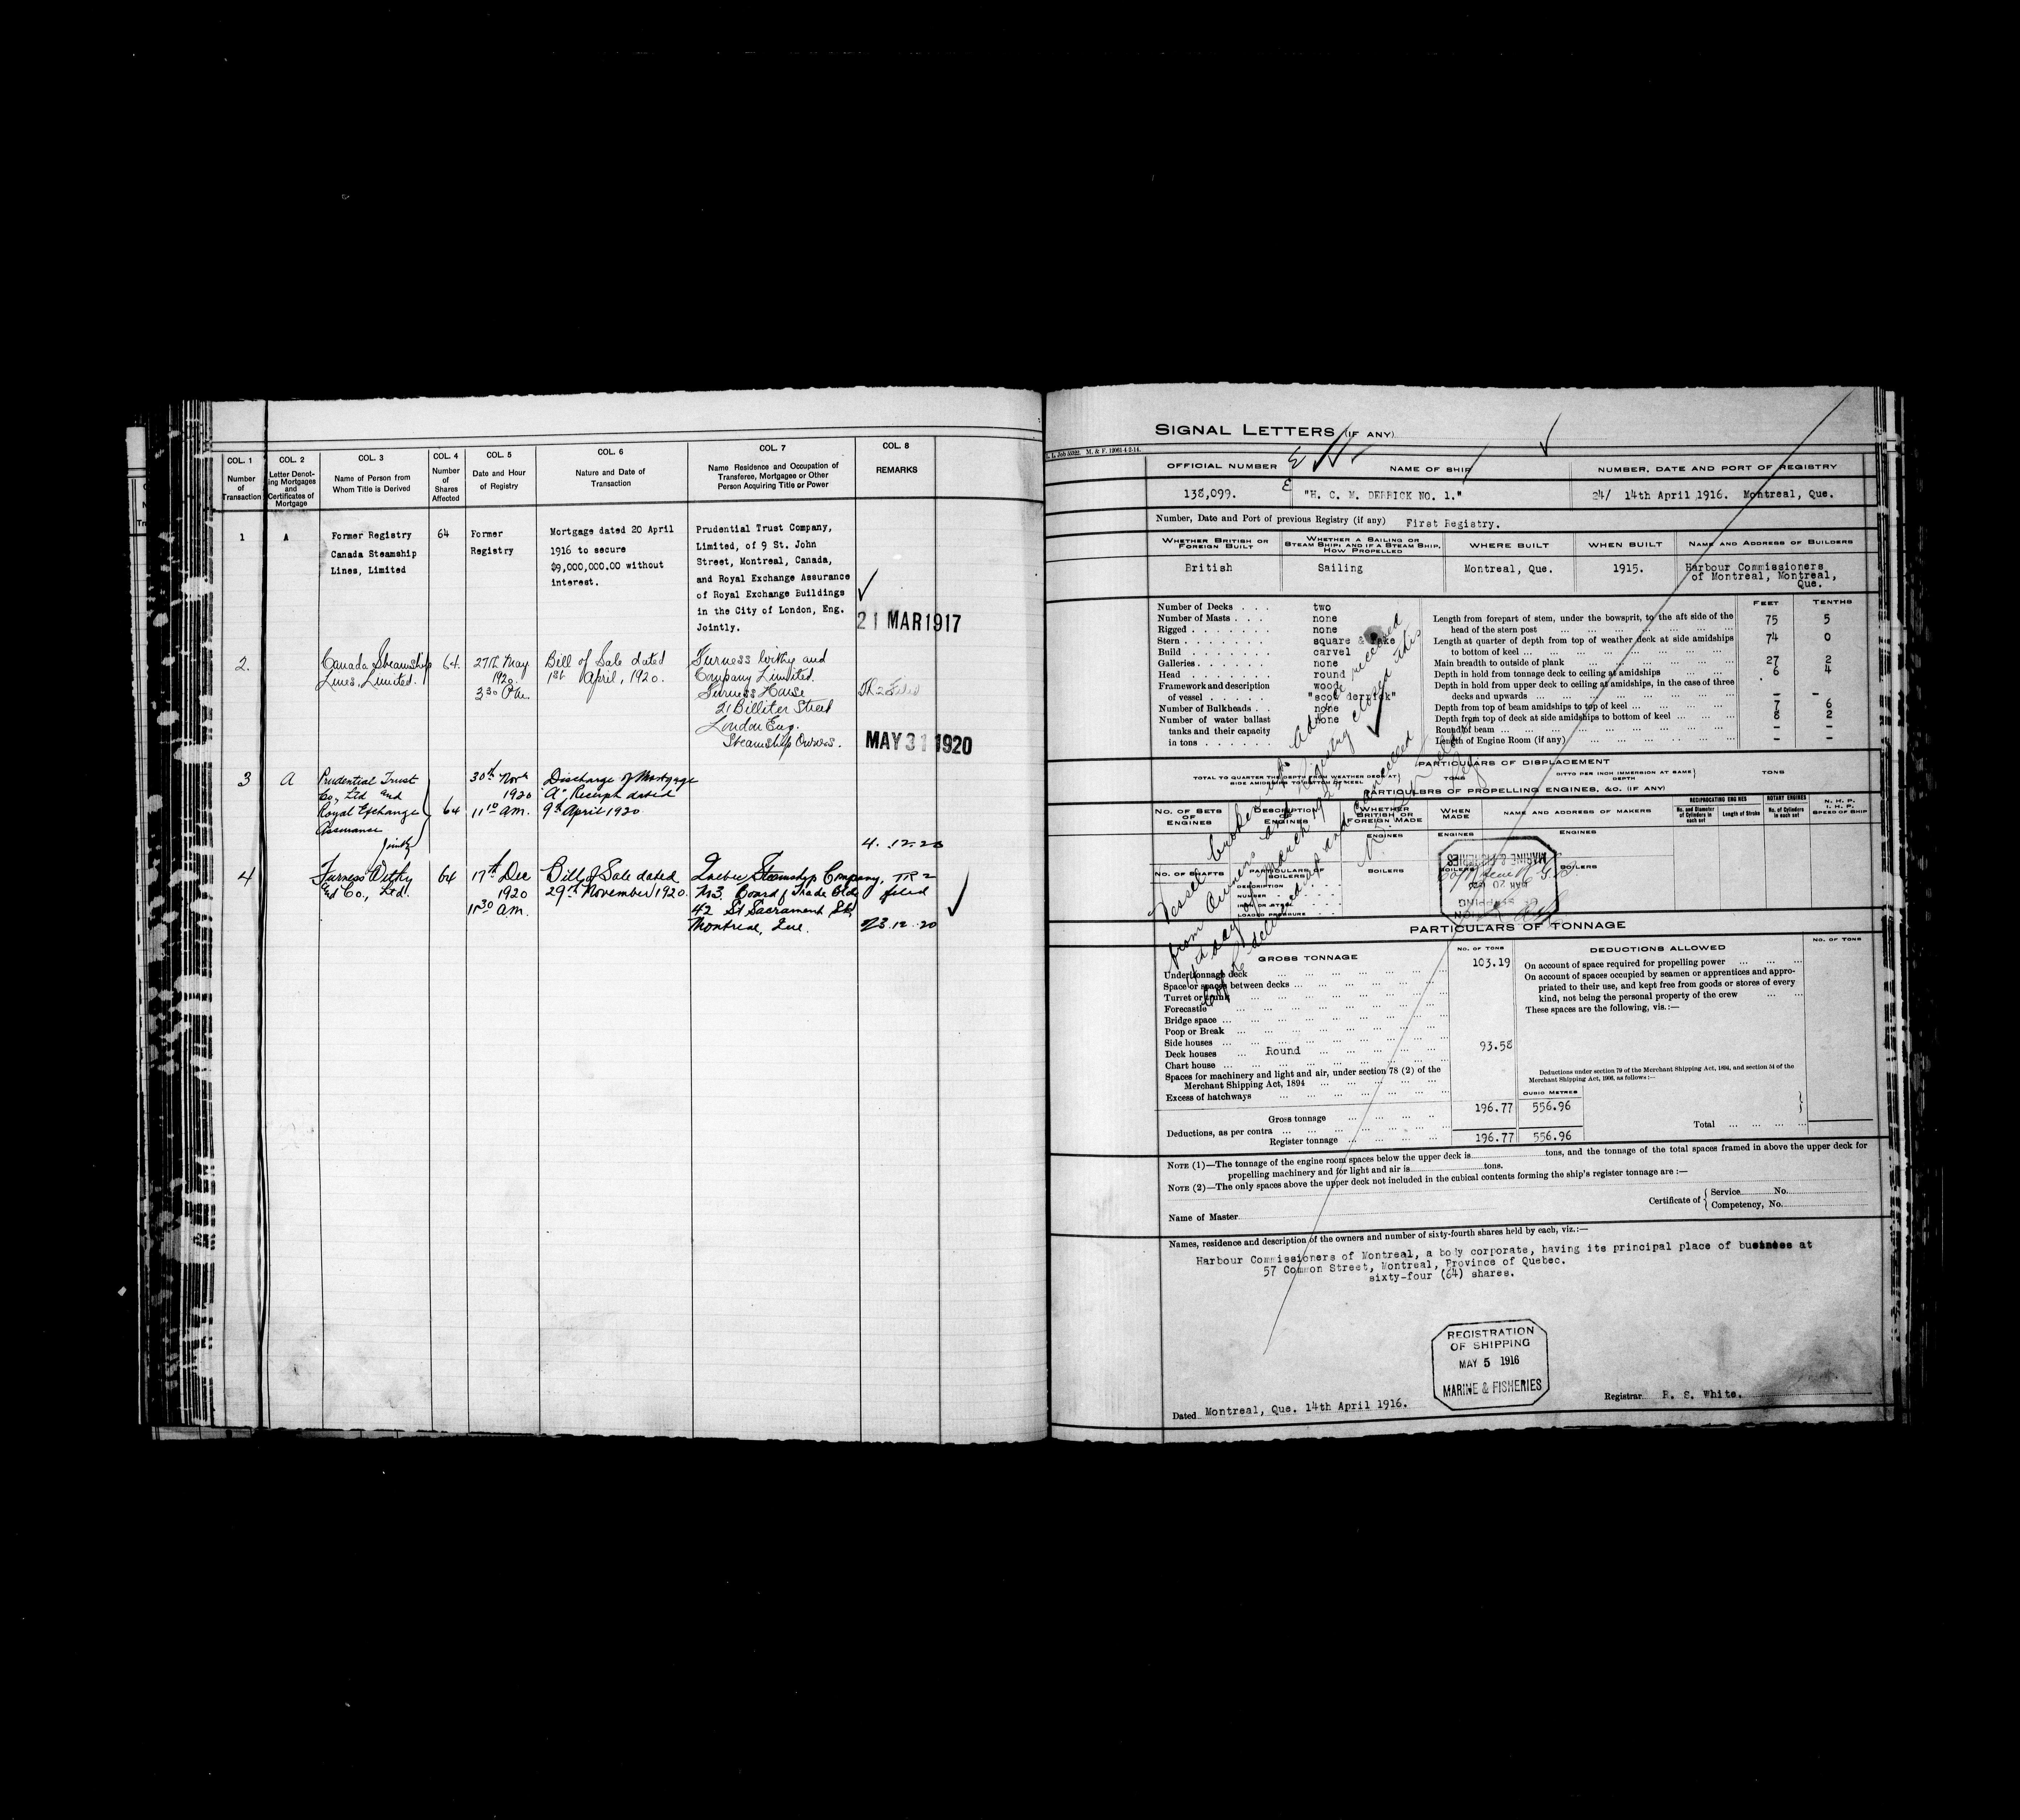 COL. 1
Number
of
Transaction
COL. 2
Letter Denot-
ing Mortgages
and
Certificates of
Mortgage
COL. 3
Name of Person from
Whom Title is Derived
COL. 4
Number
of
Shares
Affected
COL. 5
Date and Hour
of Registry
COL. 6
Nature and Date of
Transaction
COL. 7
Name Residence and Occupation of
Transferee, Mortgagee or Other
Person Acquiring Title or Power
COL. 8
REMARKS
1
A
Former Registry
Canada Steamship
Lines, Limited
64
Former
Registry
Mortgage dated 20 April
1916 to secure
$9,000,000.00 without
interest.
Prudential Trust Company,
Limited, of 9 St. John
Street, Montreal, Canada,
and Royal Exchange Assurance
of Royal Exchange Buildings
in the City of London, Eng.
Jointly.
21 MAR 1917
2.
Canada Steamship
Lines, Limited.
64.
27th May
1920.
3 30 P.m.
Bill of Sale dated
1st April, 1920.
Furness Withy and
Company Limited.
Furness House
21 Billiter Street
London Eng.
Steamship Owners.
MAY 31 1920
3
A
Prudential Trust
Co., Ltd and
Royal Exchange
Assurance
Jointly
64
30th Nov
1920
11 10 am.
Discharge of Mortgage
"A", Receipt dated
9th April 1920
4. .12.20
4
Furness Withy
and Co., Ltd.
64
17th Dec
1920
11 30 a.m.
Bill of Sale dated
29th November 1920.
Quebec Steamship Company,
No3. Board of Trade Bldg
42 St Sacrament St.,
Montreal, Que.
TR 2
filed
23.12.20
SIGNAL LETTERS (IF ANY)
OFFICIAL NUMBER
NAME OF SHIP
NUMBER, DATE AND PORT OF REGISTRY
138,099.
"H. C. M. DERRICK NO. 1."
24/ 14th April 1916. Montreal, Que.
Number, Date and Port of previous Registry (if any) First Registry.
WHETHER BRITISH OR
FOREIGN BUILT
WHETHER A SAILING OR
STEAM SHIP; AND IF A STEAM SHIP,
HOW PROPELLED
WHERE BUILT
WHEN BUILT
NAME AND ADDRESS OF BUILDERS
British
Sailing
Montreal, Que.
1915.
Harbour Commissioners
of Montreal, Montreal,
Que.
Number of Decks two
Number of Masts none
Rigged none
Stern square & rake
Build carvel
Galleries none
Head round
Framework and description wood
of vessel "scow derrick"
Number of Bulkheads none
Number of water ballast none
tanks and their capacity
in tons
FEET
TENTHS
Length from forepart of stem, under the bowsprit, to the aft side of the
head of the stern post 75 5
Length at quarter of depth from top of weather deck at side amidships
to bottom of keel 74 0
Main breadth to outside of plank 27 2
Depth in hold from tonnage deck to ceiling at amidships 6 4
Depth in hold from upper deck to ceiling at amidships, in the case of three
decks and upwards – –
Depth from top of beam amidships to top of keel 7 6
Depth from top of deck at side amidships to bottom of keel 8 2
Round of beam – –
Length of Engine Room (if any) – –
PARTICULARS OF DISPLACEMENT
TOTAL TO QUARTER THE DEPTH FROM WEATHER DECK AT
SIDE AMIDSHIPS TO BOTTOM OF KEEL
TONS
DITTO PER INCH IMMERSION AT SAME
DEPTH
TONS
PARTICULARS OF PROPELLING ENGINES, &C. (IF ANY)
NO. OF SETS
OF
ENGINES
DESCRIPTION
OF
ENGINES
WHETHER
BRITISH OR
FOREIGN MADE
WHEN
MADE
NAME AND ADDRESS OF MAKERS
RECIPROCATING ENGINES
No. and Diameter
of Cylinders in
each set
Length of Stroke
ROTARY ENGINES
No. of Cylinders
in each set
N. H. P.
I. H. P.
SPEED OF SHIP
ENGINES
ENGINES
ENGINES
NO. OF SHAFTS
PARTICULARS OF
BOILERS
BOILERS
BOILERS
BOILERS
DESCRIPTION
NUMBER
IRON OR STEEL
LOADED PRESSURE
MARINE & FISHERIES
Vessel broken up. Advice received
from Owners and Registry closed this
day of March 1925
Certificate delivered up and cancelled
PARTICULARS OF TONNAGE
GROSS TONNAGE
NO. OF TONS
DEDUCTIONS ALLOWED
NO. OF TONS
Under tonnage deck 103.19
Space or spaces between decks
Turret or trunk
Forecastle
Bridge space
Poop or Break
Side houses
Deck houses Round 93.58
Chart house
Spaces for machinery and light and air, under section 78 (2) of the
Merchant Shipping Act, 1894
Excess of hatchways
On account of space required for propelling power
On account of spaces occupied by seamen or apprentices and appro-
priated to their use, and kept free from goods or stores of every
kind, not being the personal property of the crew
These spaces are the following, vis.:—
Deductions under section 79 of the Merchant Shipping Act, 1894, and section 54 of the
Merchant Shipping Act, 1906, as follows:—
CUBIC METRES
Gross tonnage 196.77 556.96
Deductions, as per contra
Register tonnage 196.77 556.96
Total
NOTE (1)—The tonnage of the engine room spaces below the upper deck is tons, and the tonnage of the total spaces framed in above the upper deck for
propelling machinery and for light and air is tons.
NOTE (2)—The only spaces above the upper deck not included in the cubical contents forming the ship's register tonnage are :—
Name of Master
Certificate of { Service No.
Competency, No.
Names, residence and description of the owners and number of sixty-fourth shares held by each, viz.:—
Harbour Commissioners of Montreal, a body corporate, having its principal place of business at
57 Common Street, Montreal, Province of Quebec.
sixty-four (64) shares.
REGISTRATION
OF SHIPPING
MAY 5 1916
MARINE & FISHERIES
Dated Montreal, Que. 14th April 1916.
Registrar R. S. White.